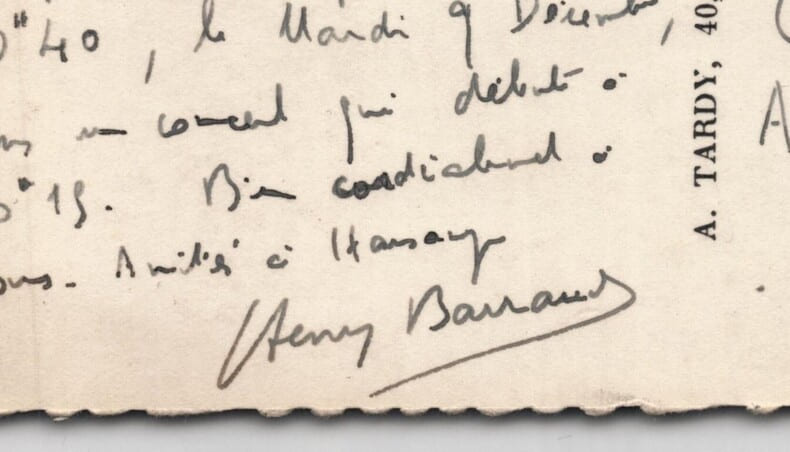 "40, le Mardi 9 Décembre,
un concert qui débute à
19. Bien cordialement à
Amitiés à
Henry Barraud
A. TARDY, 40,
A